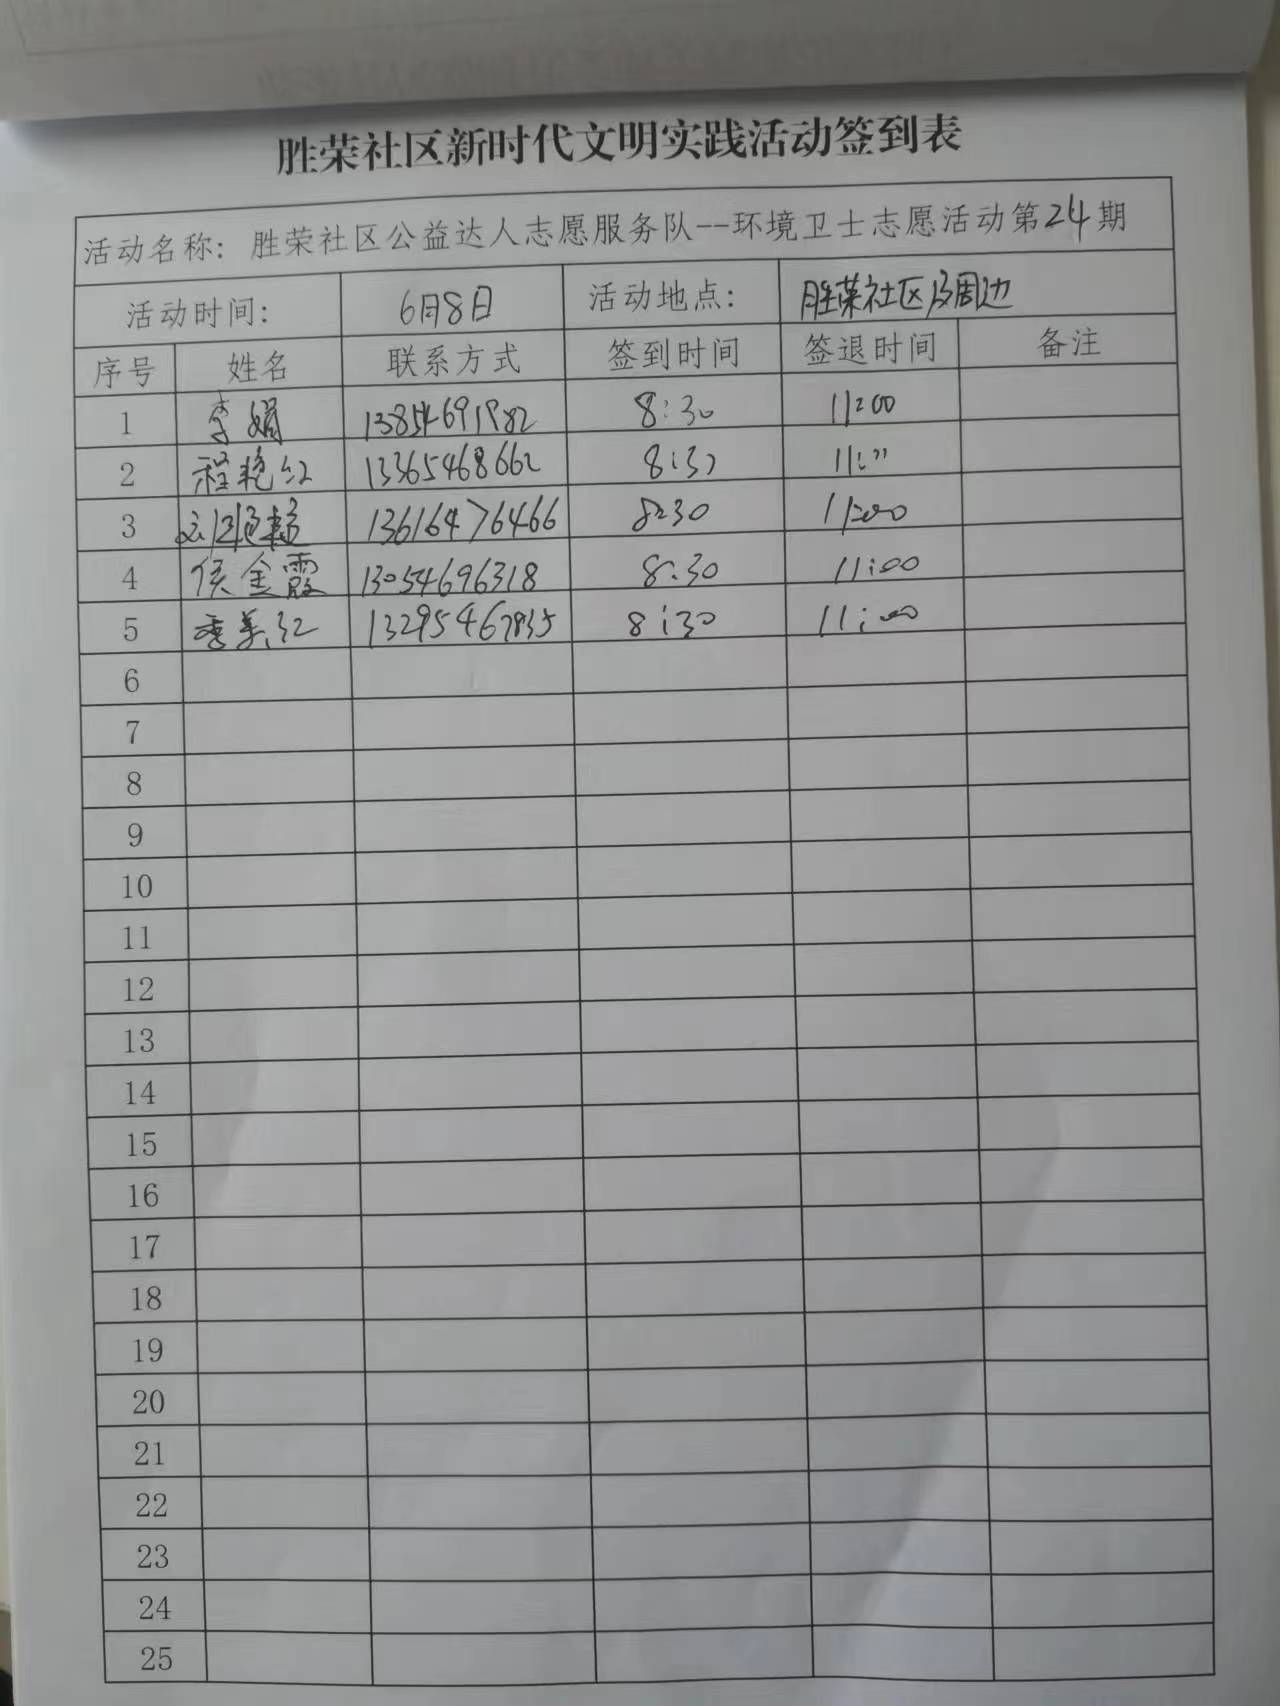 胜荣社区新时代文明实践活动签到表
活动名称: 胜荣社区公益达人志愿服务队--环境卫士志愿活动第24期
活动时间: 6月8日 活动地点: 胜荣社区及周边
序号 姓名 联系方式 签到时间 签退时间 备注
1 李娟 13854691982 8:30 11:00
2 程艳红 13365468662 8:30 11:00
3 13616476466 8:30 11:00
4 侯金霞 13054696318 8:30 11:00
5 季美红 13295467835 8:30 11:00
6
7
8
9
10
11
12
13
14
15
16
17
18
19
20
21
22
23
24
25